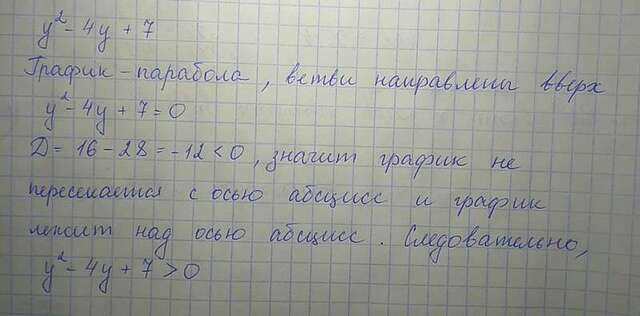 y² - 4y + 7
График - парабола, ветви направлены вверх
y² - 4y + 7 = 0
D = 16 - 28 = -12 < 0, значит график не
пересекается с осью абсцисс и график
лежит над осью абсцисс. Следовательно,
y² - 4y + 7 > 0